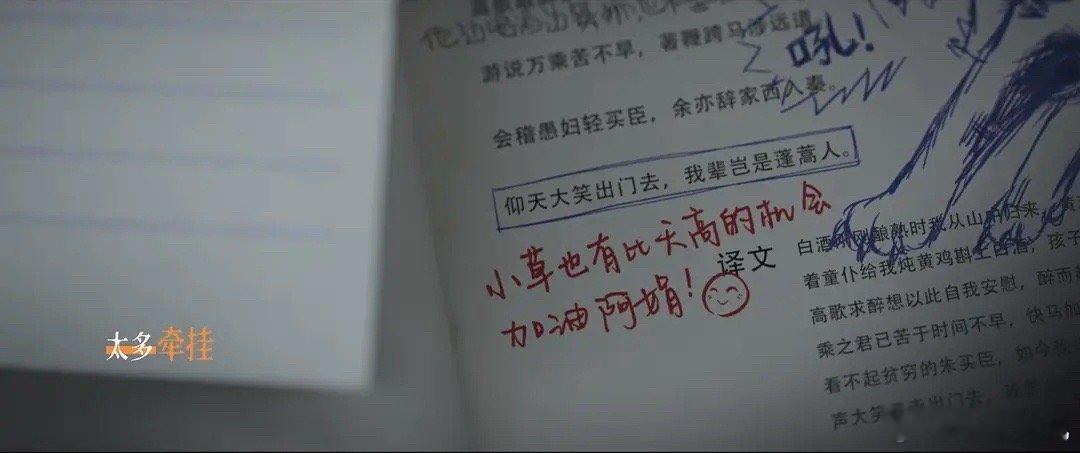 游说万乘苦不早，著鞭跨马涉远道。
吼！
会稽愚妇轻买臣，余亦辞家西入秦。
仰天大笑出门去，我辈岂是蓬蒿人。
小草也有比天高的机会
加油阿娟！
译文
白酒刚刚酿熟时我从山中归来，黄
着童仆给我炖黄鸡斟上白酒，孩子
高歌求醉想以此自我安慰，醉而起
乘之君已苦于时间不早，快马加
看不起贫穷的朱买臣，如今我
声大笑着走出门去，我
太多牵挂